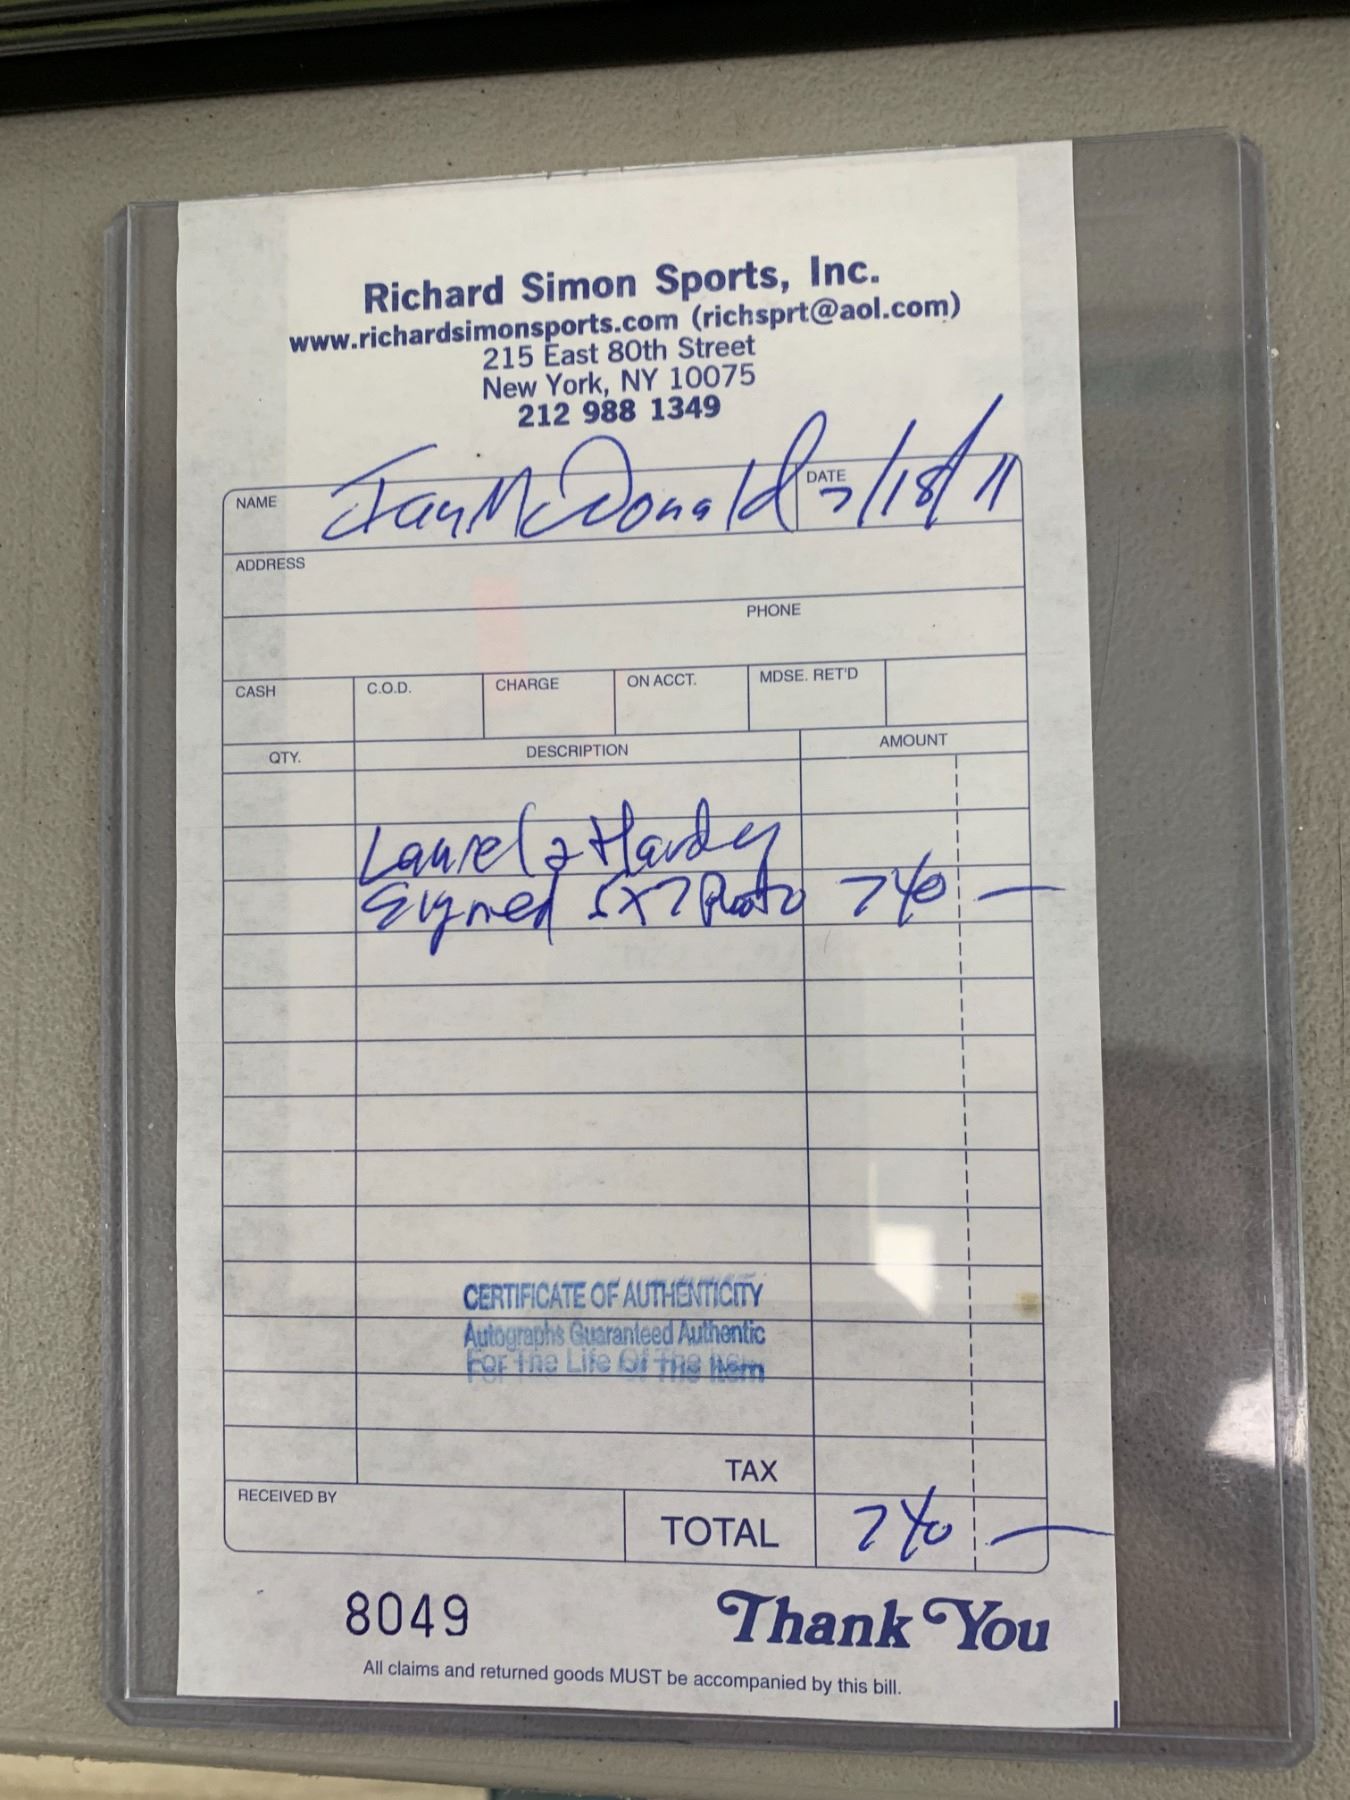 Richard Simon Sports, Inc.
www.richardsimonsports.com (richsprt@aol.com)
215 East 80th Street
New York, NY 10075
212 988 1349
NAME Jay McDonald DATE 7/18/11
ADDRESS
PHONE
CASH C.O.D. CHARGE ON ACCT. MDSE. RET'D
QTY. DESCRIPTION AMOUNT
Laurel & Hardy
Signed 5x7 Photo 740 —
CERTIFICATE OF AUTHENTICITY
Autographs Guaranteed Authentic
For The Life Of The Item
TAX
RECEIVED BY
TOTAL 740 —
8049 Thank You
All claims and returned goods MUST be accompanied by this bill.